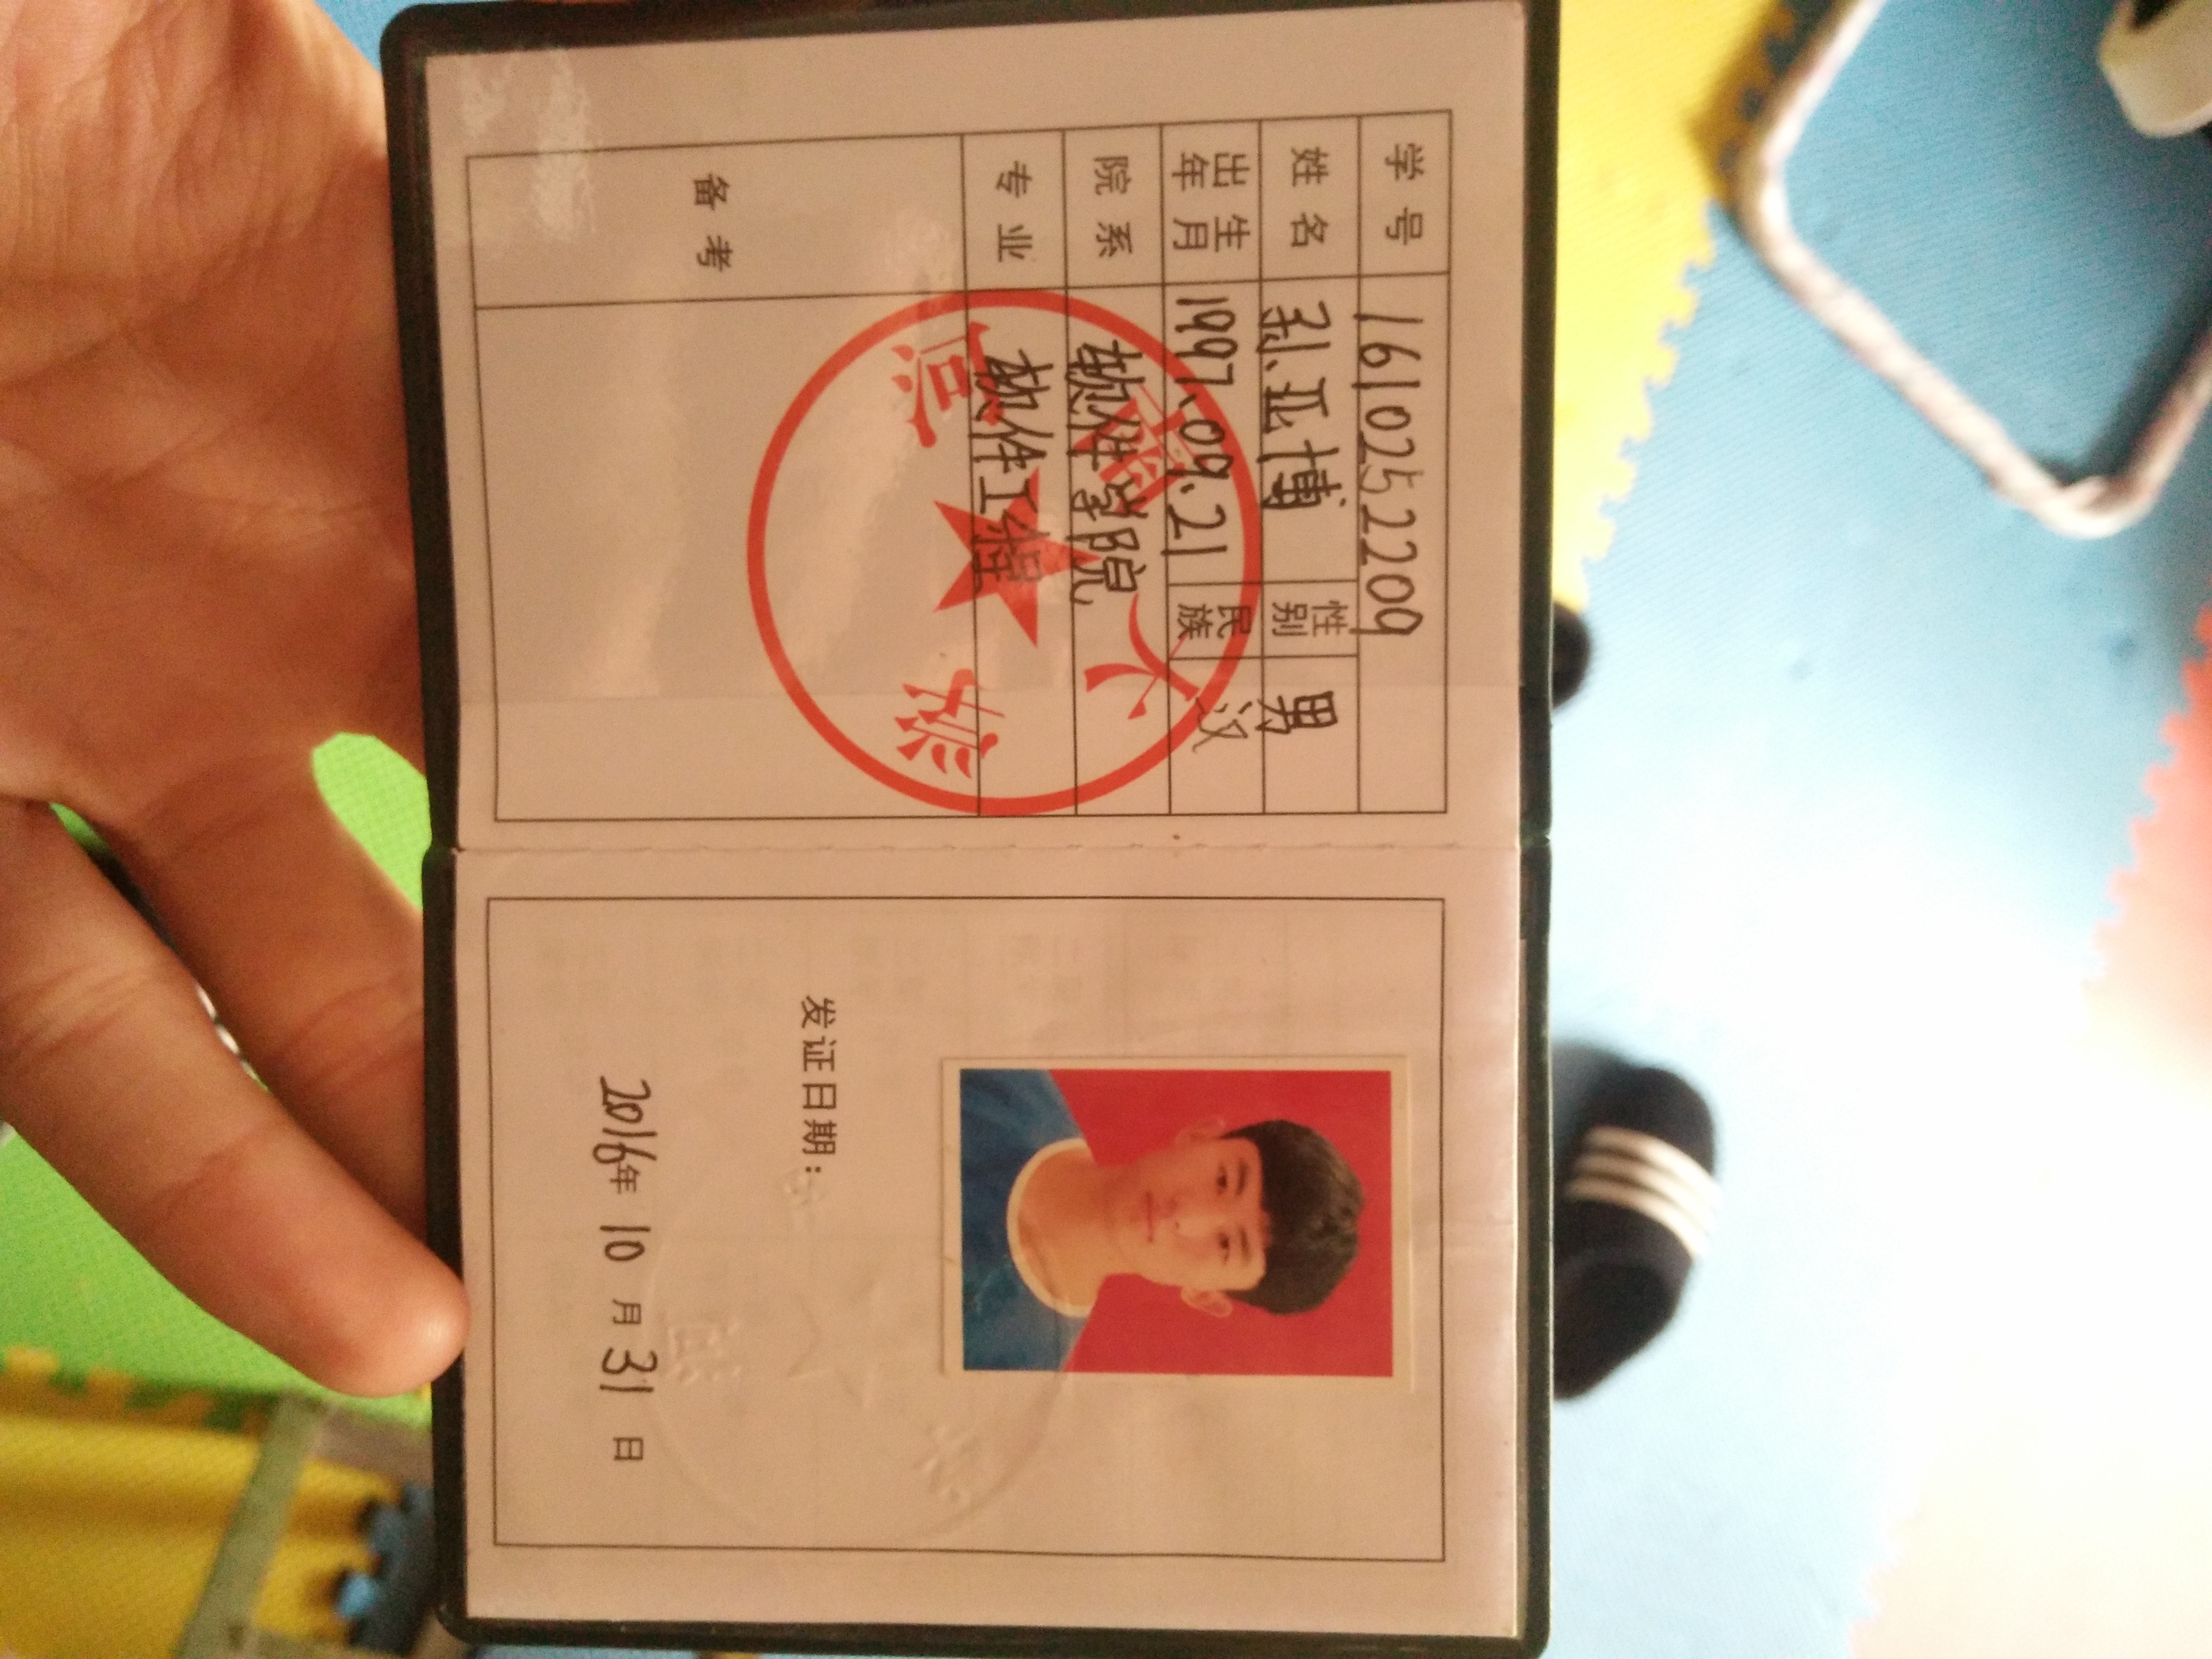 学号 1610252209
姓名 孙亚博 性别 男
出生年月 1997.09.21 民族 汉
院系 软件学院
专业 软件工程
备考
河南大学
发证日期：
2016年 10 月 31 日